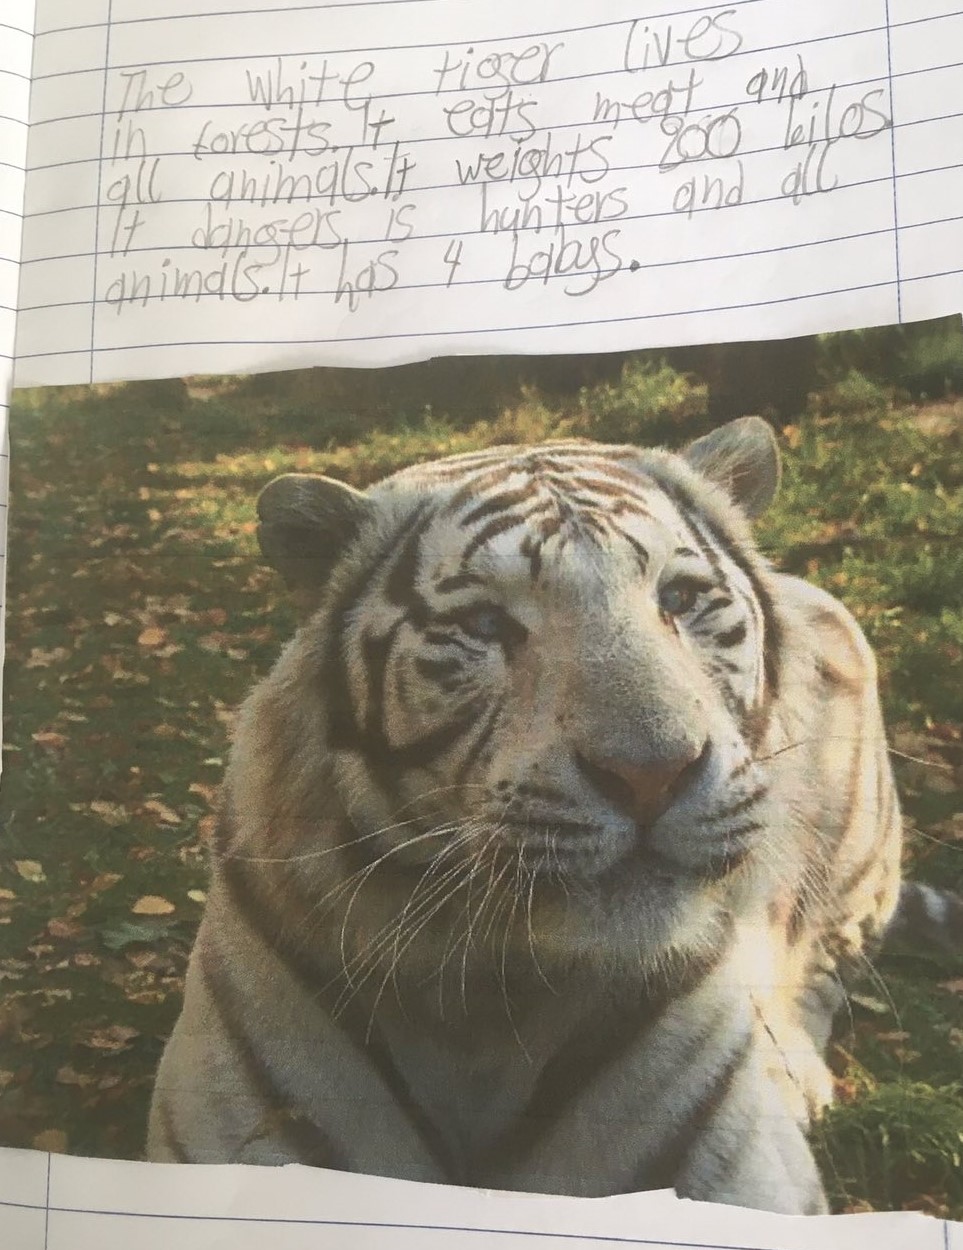 The white tiger lives
in forests. It eats meat and
all animals. It weights 200 kilos
It dangers is hunters and all
animals. It has 4 babys.